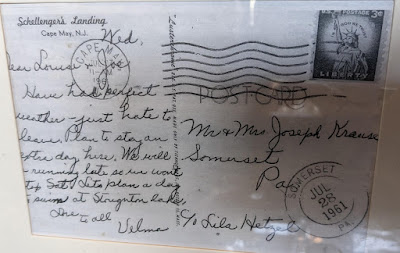 Schellenger's Landing
Cape May, N.J.
Wed,
CAPE MAY
Dear Louise
Have had perfect
weather - just hate to
leave. Plan to stay an
extra day here. We will
running late so we wont
stop Sat. Lets plan a day
swim at Stoughton lake
Love to all
Velma
POSTCARD
IN GOD WE TRUST
3¢
LIBERTY
Mr & Mrs. Joseph Krause
Somerset
Pa
c/o Lila Hetzel
SOMERSET
JUL
28
1961
PA.